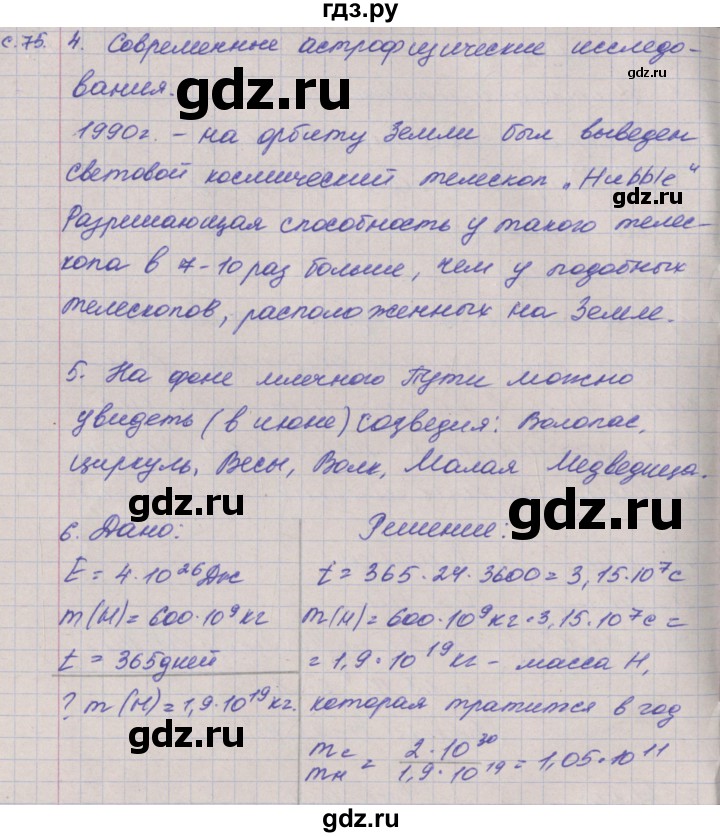 гдз.ру
с.75. 4. Современные астрофизические исследо-
вания.
1990г. - на орбиту Земли был выведен
световой космический телескоп „Hubble"
Разрешающая способность у такого телес-
копа в 7-10 раз больше, чем у подобных
телескопов, расположенных на Земле.
5. На фоне млечного Пути можно
увидеть (в июне) созведия: Волопас,
циркуль, Весы, Волк, Малая Медведица.
6. Дано: Решение:
E = 4·10²⁶Дж t = 365·24·3600 = 3,15·10⁷с
m(H) = 600·10⁹кг m(H) = 600·10⁹кг·3,15·10⁷с =
t = 365дней = 1,9·10¹⁹кг - масса H,
? m(H) = 1,9·10¹⁹кг. которая тратится в год
mс/mн = 2·10³⁰/1,9·10¹⁹ = 1,05·10¹¹
gdz.ru
gdz.ru
gdz.ru
gdz.ru
gdz.ru
gdz.ru
gdz.ru
gdz.ru
gdz.ru